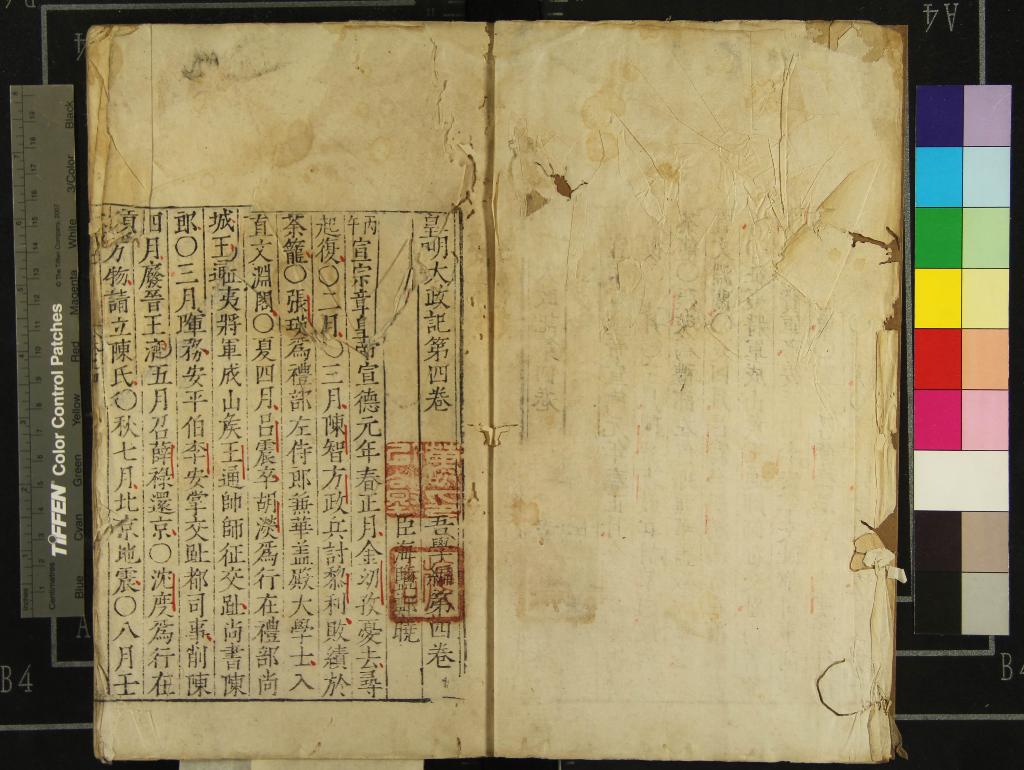 皇明大政記第四卷 吾學編第四卷
臣海鹽鄭曉
丙午宣宗章皇帝宣德元年春正月金幼孜憂去尋
起復〇二月〇三月陳智方政兵討黎利敗績於
茶籠〇張瑛爲禮部左侍郎兼華蓋殿大學士入
直文淵閣〇夏四月呂震卒胡濙爲行在禮部尚
城王通征夷將軍成山侯王通帥師征交趾尚書陳
郎〇三月陳務安平伯李安掌交趾都司事削陳
四月廢晉王濟五月召薛祿還京〇沈度爲行在
貢方物請立陳氏〇秋七月北京地震〇八月壬
TIFFEN Color Control Patches
© The Tiffen Company, 2007
Centimetres
Blue
Cyan
Green
Yellow
Red
Magenta
White
3/Color
Black
A4
B4
B4